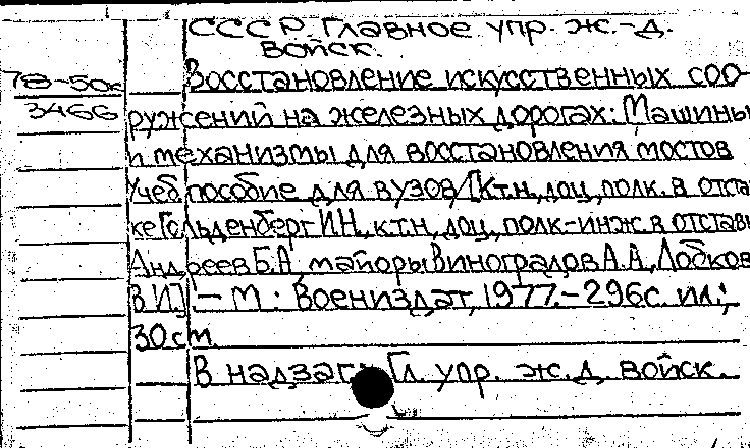 СССР. Главное упр. ж.-д.
войск.
78-50к
3466
Восстановление искусственных соо-
ружений на железных дорогах: Машины
и механизмы для восстановления мостов
Учеб. пособие для вузов/[К.т.н., доц., полк. в отстав
ке Гольденберг И.Н., к.т.н., доц., полк-инж. в отстав
Андреев Б.А., майоры Виноградов А.А., Лобков
В.И.] – М.: Воениздат, 1977.– 296с. ил.;
30 cm.
В надзаг.: Гл. упр. ж.д. войск.